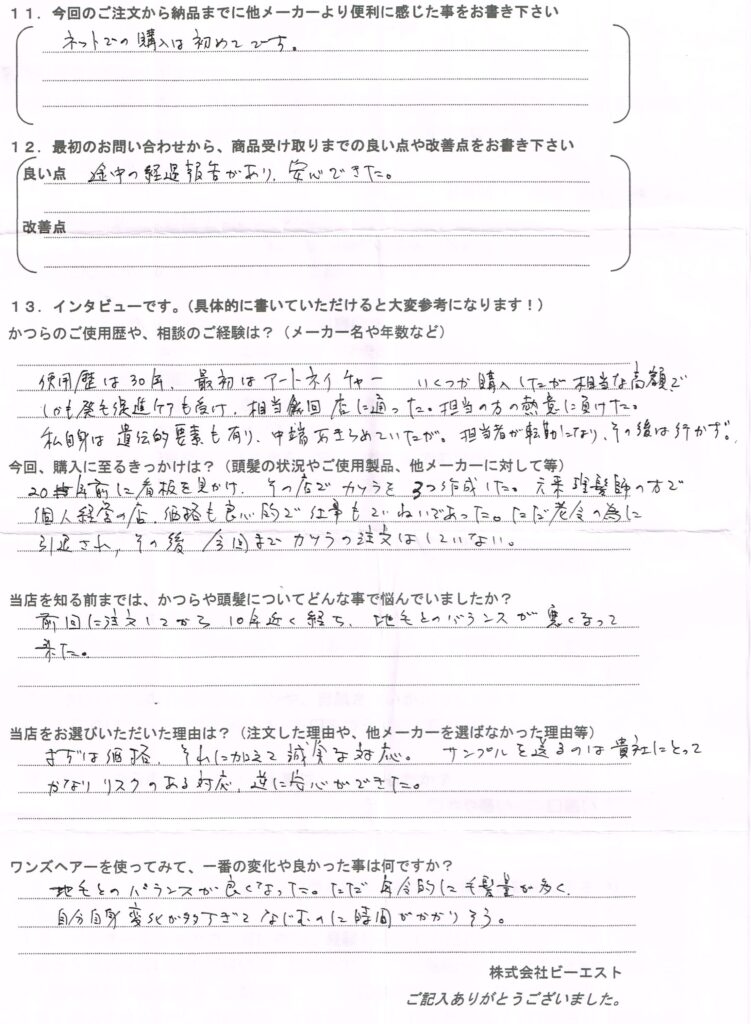 11．今回のご注文から納品までに他メーカーより便利に感じた事をお書き下さい
ネットでの購入は初めてです。
12．最初のお問い合わせから、商品受け取りまでの良い点や改善点をお書き下さい
良い点 途中の経過報告があり、安心できた。
改善点
13．インタビューです。（具体的に書いていただけると大変参考になります！）
かつらのご使用歴や、相談のご経験は？（メーカー名や年数など）
使用歴は30年、最初はアートネイチャー いくつか購入したが相当な高額で
しかも発毛促進ケアも受け、相当 店に通った。担当の方の熱意に負けた。
私自身は遺伝的要素も有り、中端あきらめていたが。担当者が転勤になり、その後は行かず。
今回、購入に至るきっかけは？（頭髪の状況やご使用製品、他メーカーに対して等）
20年前に看板を見かけ、その店でカツラを3つ作成した。元来理髪師の方で
個人経営の店、価格も良心的で仕事もていねいであった。ただ老令の為に
引退され、その後 今回までカツラの注文はしていない。
当店を知る前までは、かつらや頭髪についてどんな事で悩んでいましたか？
前回に注文してから10年近く経ち、地毛とのバランスが悪くなって
来た。
当店をお選びいただいた理由は？（注文した理由や、他メーカーを選ばなかった理由等）
まずは価格、それに加えて誠実な対応。 サンプルを送るのは貴社にとって
かなりリスクのある対応、逆に安心ができた。
ワンズヘアーを使ってみて、一番の変化や良かった事は何ですか？
地毛とのバランスが良くなった。ただ年令的に毛髪量が多く、
自分自身変化が多すぎてなじむのに時間がかかりそう。
株式会社ビーエスト
ご記入ありがとうございました。